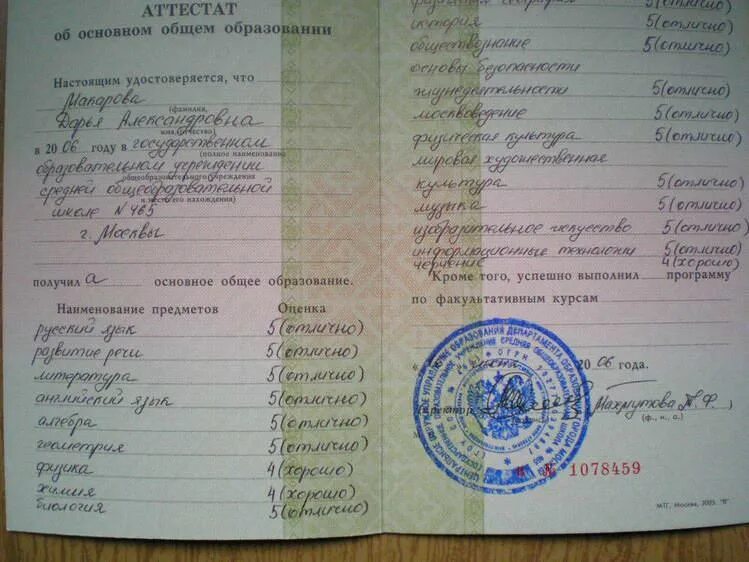 АТТЕСТАТ
об основном общем образовании
Настоящим удостоверяется, что
Макарова
(фамилия,
Дарья Александровна
имя, отчество)
в 2006 году в государственном
(полное наименование
образовательном учреждении
общеобразовательного учреждения
средней общеобразовательной
и место его нахождения)
школе N 465
г. Москвы
получил а основное общее образование.
Наименование предметов Оценка
русский язык 5(отлично)
развитие речи 5(отлично)
литература 5(отлично)
английский язык 5(отлично)
алгебра 5(отлично)
геометрия 5(отлично)
физика 4(хорошо)
химия 4(хорошо)
биология 5(отлично)
физическая география 5(отлично)
история 5(отлично)
обществознание 5(отлично)
основы безопасности
жизнедеятельности 5(отлично)
москвоведение 5(отлично)
физическая культура 5(отлично)
мировая художественная
культура 5(отлично)
музыка 5(отлично)
изобразительное искусство 5(отлично)
информационные технологии 5(отлично)
черчение 4(хорошо)
Кроме того, успешно выполнил программу
по факультативным курсам
2006 года.
Директор Махмутова Т.Ф.
(ф., и., о.)
№ 1078459
МТГ, Москва, 2005, "В"